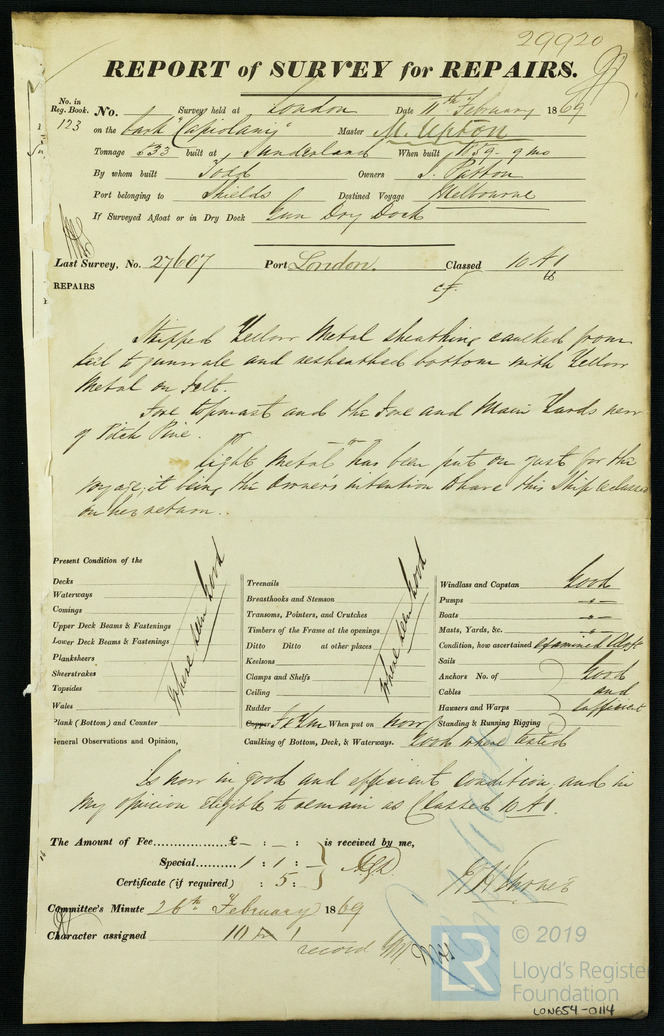 29920
REPORT of SURVEY for REPAIRS.
No. in Reg. Book. No. Survey held at London Date 11th February 1869
123 on the bark "Capiolani" Master M. Upton
Tonnage 533 built at Sunderland When built 1859 - 9 mo
By whom built Todd Owners J. Patton
Port belonging to Shields Destined Voyage Melbourne
If Surveyed Afloat or in Dry Dock Gun Dry Dock
Last Survey, No. 27607 Port London. Classed 10 A1
REPAIRS cf.
Stripped Yellow Metal sheathing caulked from
keil to gunwale and resheathed bottom with Yellow
Metal on Felt.
Fore topmast and the Fore and Main Yards new
of Pitch Pine.
light Metal has been put on just for the
voyage, it being the Owner's intention to have this Ship reclassed
on her return.
Present Condition of the
Decks
Waterways
Comings
Upper Deck Beams & Fastenings
Lower Deck Beams & Fastenings
Planksheers
Sheerstrakes
Topsides
Wales
Plank (Bottom) and Counter
where seen Good
Treenails
Breasthooks and Stemson
Transoms, Pointers, and Crutches
Timbers of the Frame at the openings
Ditto Ditto at other places
Keelsons
Clamps and Shelfs
Ceiling
Rudder
where seen Good
Copper F & YM When put on now
Windlass and Capstan Good
Pumps -"-
Boats -"-
Masts, Yards, &c. -"-
Condition, how ascertained examined Aloft
Sails
Anchors No. of Good
Cables and
Hawsers and Warps sufficient
Standing & Running Rigging
General Observations and Opinion, Caulking of Bottom, Deck, & Waterways. Good where tested
Is now in good and efficient condition and in
my opinion eligible to remain as Classed 10 A1.
The Amount of Fee................£ - : - : is received by me,
Special.......... 1 : 1 :
Certificate (if required) : 5 :
Committee's Minute 26th February 1869
Character assigned 10 A 1
record
© 2019
LR
Lloyd's Register
Foundation
LON654-0114